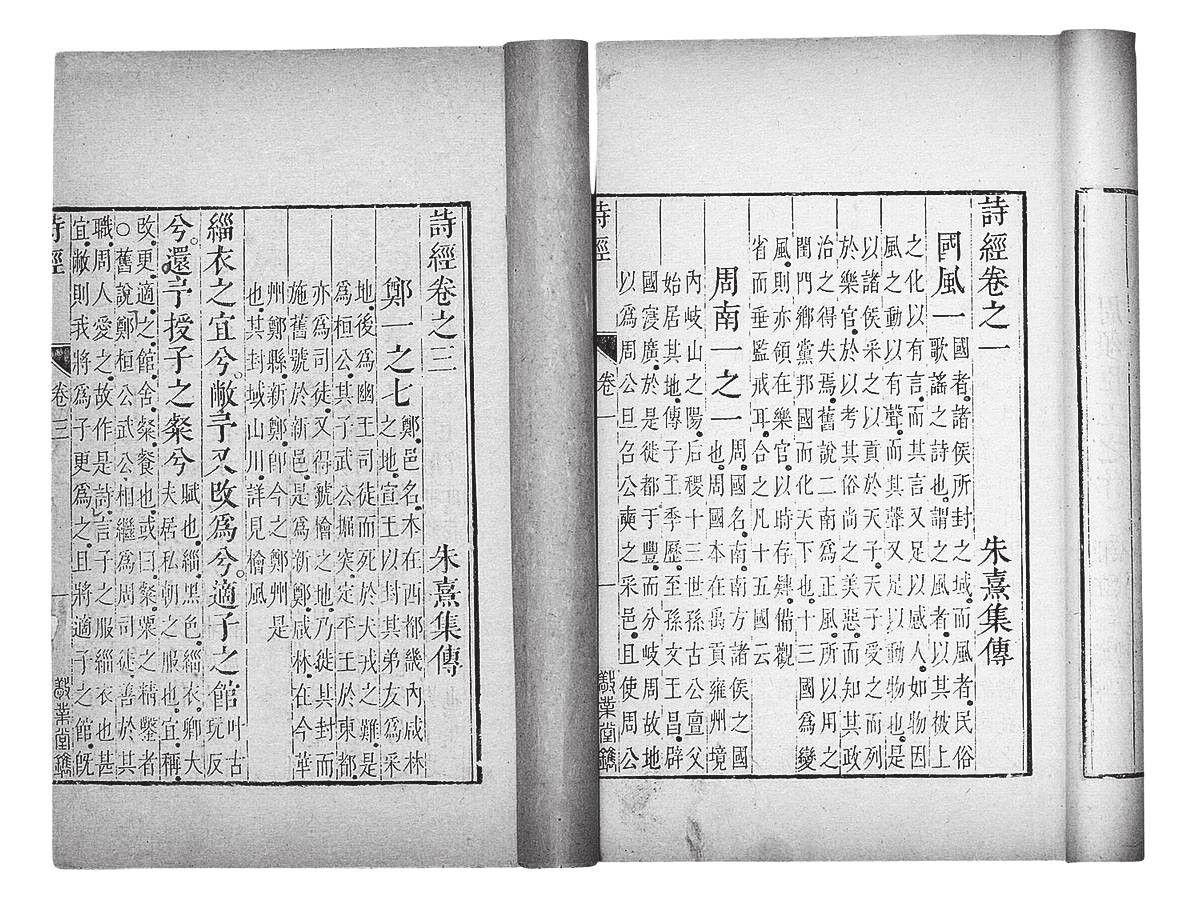 詩經卷之一 朱熹集傳
國風一 國者諸侯所封之域而風者民俗
歌謠之詩也謂之風者以其被上
之化以有言而其言又足以感人如物因
風之動以有聲而其聲又足以動物也是
以諸侯采之以貢於天子天子受之而列
於樂官於以考其俗尚之美惡而知其政
治之得失焉舊說二南爲正風所以用之
閨門鄉黨邦國而化天下也十三國爲變
風則亦領在樂官以時存肄備觀
省而垂監戒耳合之凡十五國云
周南一之一 周國名南南方諸侯之國
也周國本在禹貢雍州境
內岐山之陽后稷十三世孫古公亶父
始居其地傳子王季歷至孫文王昌辟
國寖廣於是徙都于豐而分岐周故地
以爲周公旦召公奭之采邑且使周公
詩經 卷一 一 堂鐫
詩經卷之三 朱熹集傳
鄭一之七 鄭邑名本在西都畿內咸林
之地宣王以封其弟友爲采
地後爲幽王司徒而死於犬戎之難是
爲桓公其子武公掘突定平王於東都
亦爲司徒又得虢檜之地乃徙其封而
施舊號於新邑是爲新鄭咸林在今華
州鄭縣新鄭卽今之鄭州是
也其封域山川詳見檜風
緇衣之宜兮敝予又改爲兮適子之館 叶古
玩反
兮還予授子之粲兮 賦也緇黑色緇衣卿大
夫居私朝之服也宜稱
改更適之館舍粲餐也或曰粲粟之精鑿者
○舊說鄭桓公武公相繼爲周司徒善於其
職周人愛之故作是詩言子之服緇衣也甚
宜敝則我將爲子更爲之且將適子之館旣
詩經 卷三 一 堂鐫